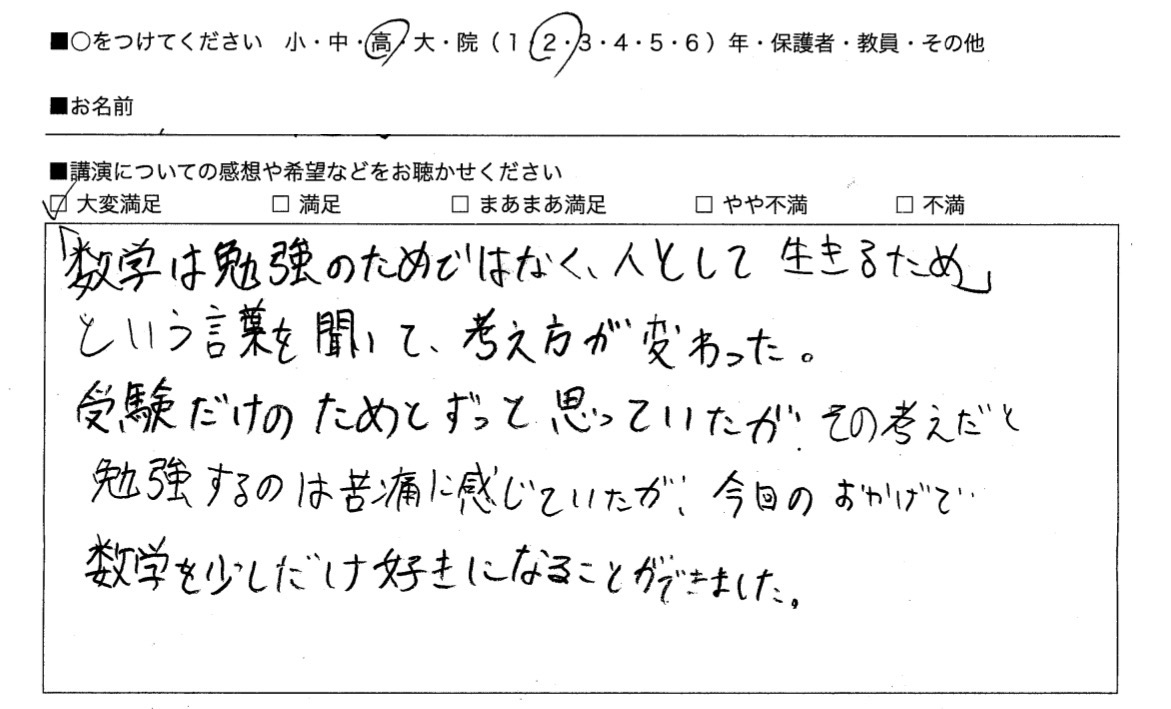 ■○をつけてください 小・中・高・大・院（1・2・3・4・5・6）年・保護者・教員・その他
■お名前
■講演についての感想や希望などをお聴かせください
□ 大変満足 □ 満足 □ まあまあ満足 □ やや不満 □ 不満
「数学は勉強のためではなく、人として生きるため」
という言葉を聞いて、考え方が変わった。
受験だけのためとずっと思っていたが、その考えだと
勉強するのは苦痛に感じていたが、今回のおかげで
数学を少しだけ好きになることができました。